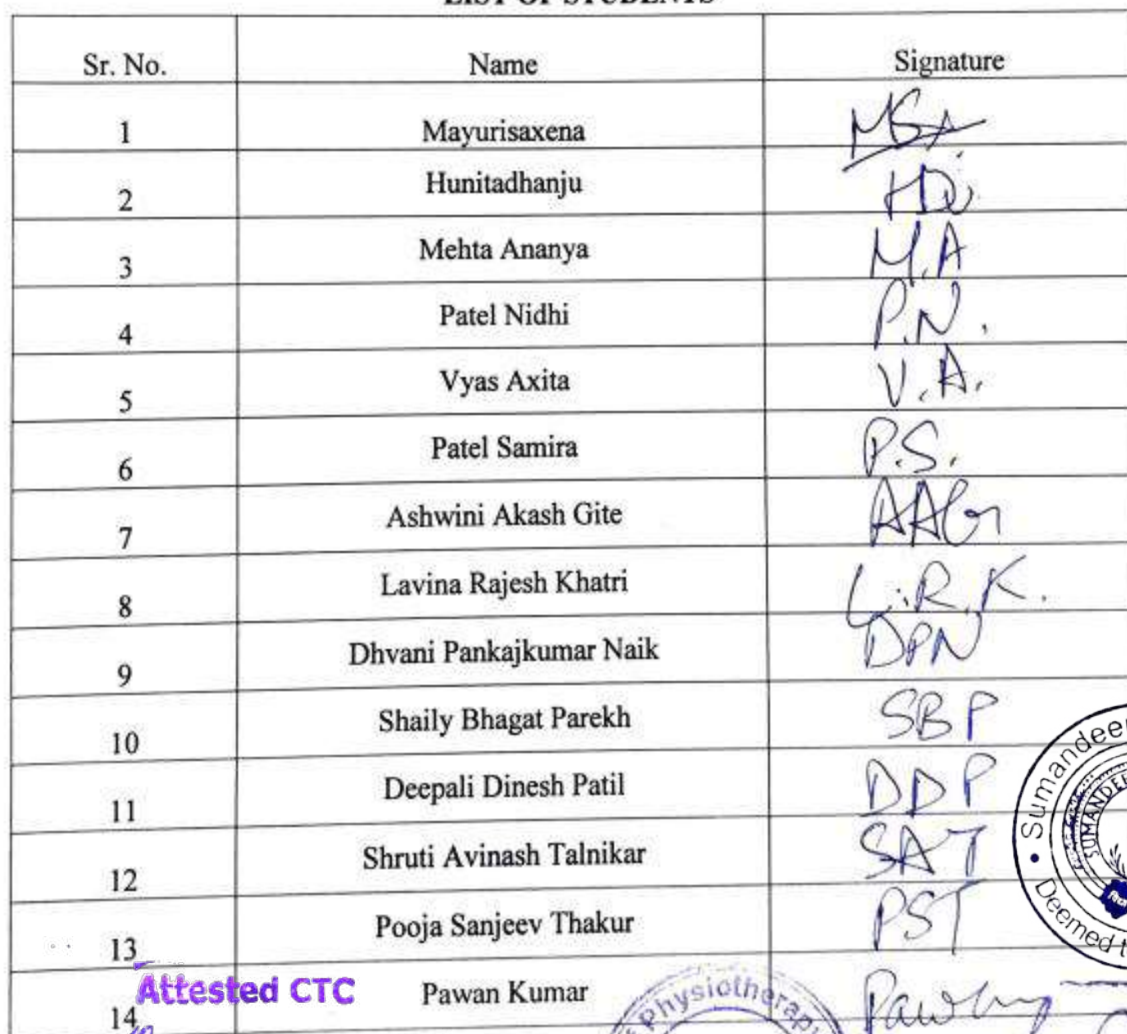 LIST OF STUDENTS
Sr. No. Name Signature
1 Mayurisaxena MSA
2 Hunitadhanju HD.
3 Mehta Ananya M.A
4 Patel Nidhi P.N.
5 Vyas Axita V.A.
6 Patel Samira P.S.
7 Ashwini Akash Gite AAG
8 Lavina Rajesh Khatri L.R.K.
9 Dhvani Pankajkumar Naik DPN
10 Shaily Bhagat Parekh SBP
11 Deepali Dinesh Patil DDP
12 Shruti Avinash Talnikar SAT
13 Pooja Sanjeev Thakur PST
14 Pawan Kumar
Attested CTC
Physiotherap
Sumandee
SUMANDEE
Deemed t